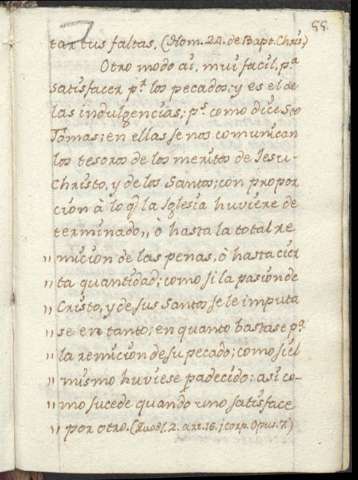 55.
tar tus faltas. (Hom. 24. de Bapt. Chris)
Otro modo ai, mui facil, pª
satisfacer pʳ los pecados; y es el de
las indulgencias; pʳ como dice Sto
Tomas; en ellas se nos comunican
los tesoros de los meritos de Iesu-
Christo, y de los Santos; con propor
cion à lo q̃ la Iglesia huviere de
terminado,, ò hasta la total re
,, micion de las penas, ò hasta cier
,, ta quantidad; como si la pasion de
,, Cristo, y de sus Santos se le imputa
,, se en tanto; en quanto bastase pª
,, la remicion de su pecado; como si el
,, mismo huviese padecido: asi co-
,, mo sucede quando uno satisface
,, por otro. (Quodl. 2. art. 16. j corp. Opus. 7.)